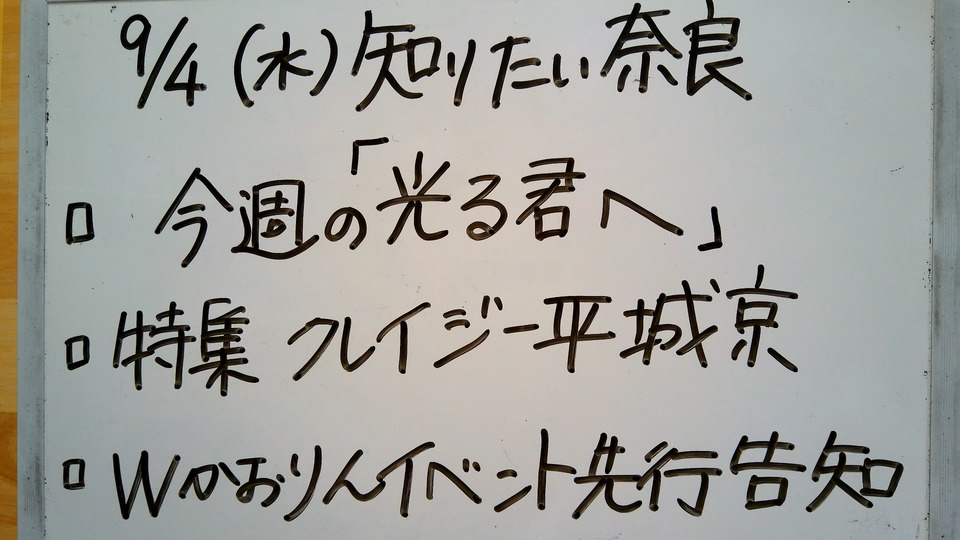 9/4(水)知りたい奈良
□ 今週の「光る君へ」
□ 特集 クレイジー平城京
□ Wかおりんイベント先行告知